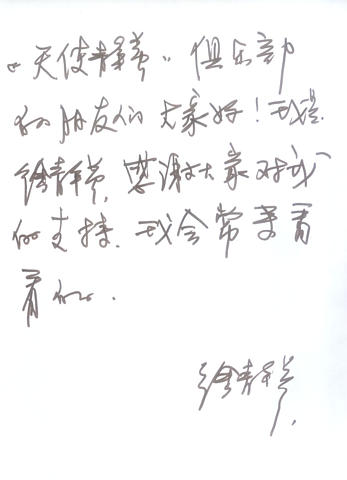 “天使静蕾”俱乐部
的朋友们大家好！我是
徐静蕾，感谢大家对我
的支持。我会常来看
看的。
徐静蕾